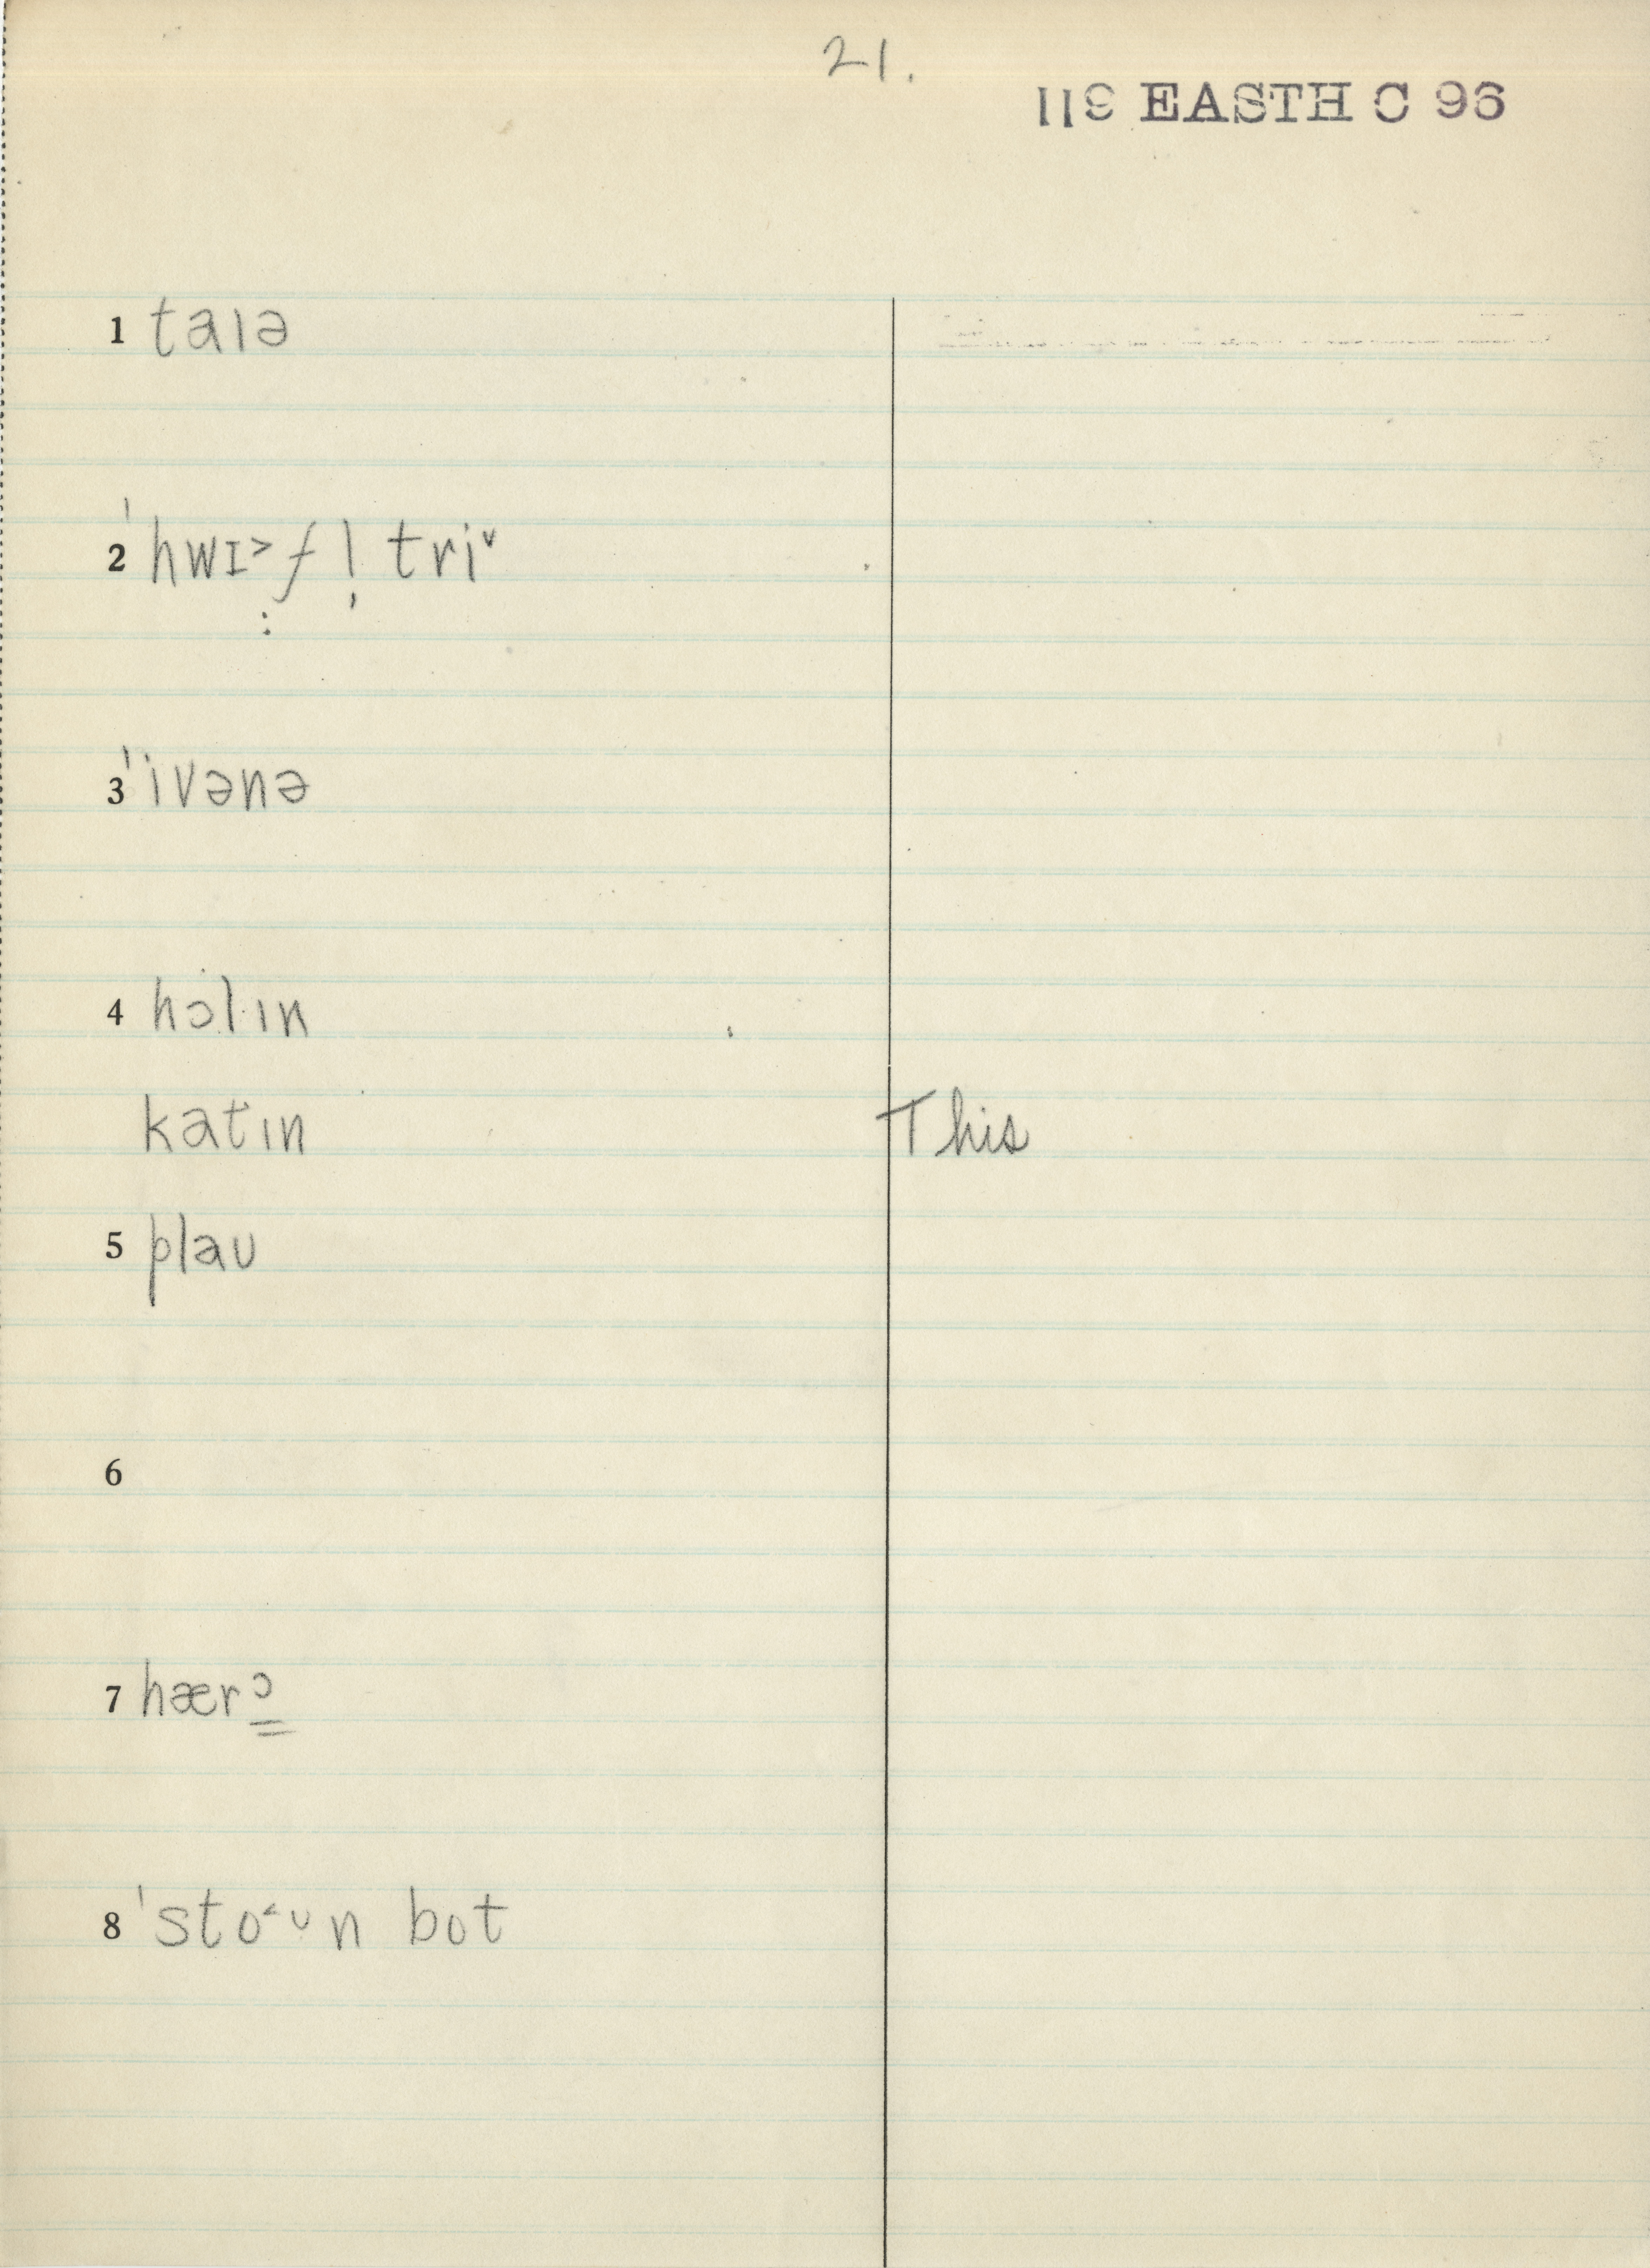 21.
119 EASTH C 96
1 taɪə
2 ˈhwɪ˃f l̩ tri˅
3 ˈivənə
4 hɔlɪn
katɪn This
5 plaʊ
6
7 hærɔ̳
8 ˈsto˂ʊn bot